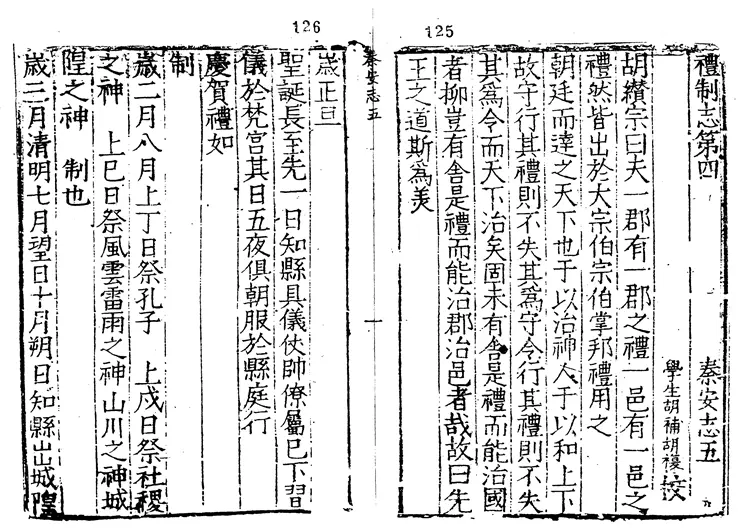 125
禮制志第四 秦安志五
學生胡補胡褏 校
胡纘宗曰夫一郡有一郡之禮一邑有一邑之
禮然皆出於大宗伯宗伯掌邦禮用之
朝廷而達之天下也于以治神人于以和上下
故守行其禮則不失其爲守令行其禮則不失
其爲令而天下治矣固未有舍是禮而能治國
者柳豈有舍是禮而能治郡治邑者哉故曰先
王之道斯爲美
秦安志五
一
126
歲正旦
聖誕長至先一日知縣具儀仗帥僚屬已下習
儀於梵宮其日五夜俱朝服於縣庭行
慶賀禮如
制
歲二月八月上丁日祭孔子 上戊日祭社稷
之神 上巳日祭風雲雷雨之神山川之神城
隍之神 制也
歲三月清明七月望日十月朔日知縣出城隍